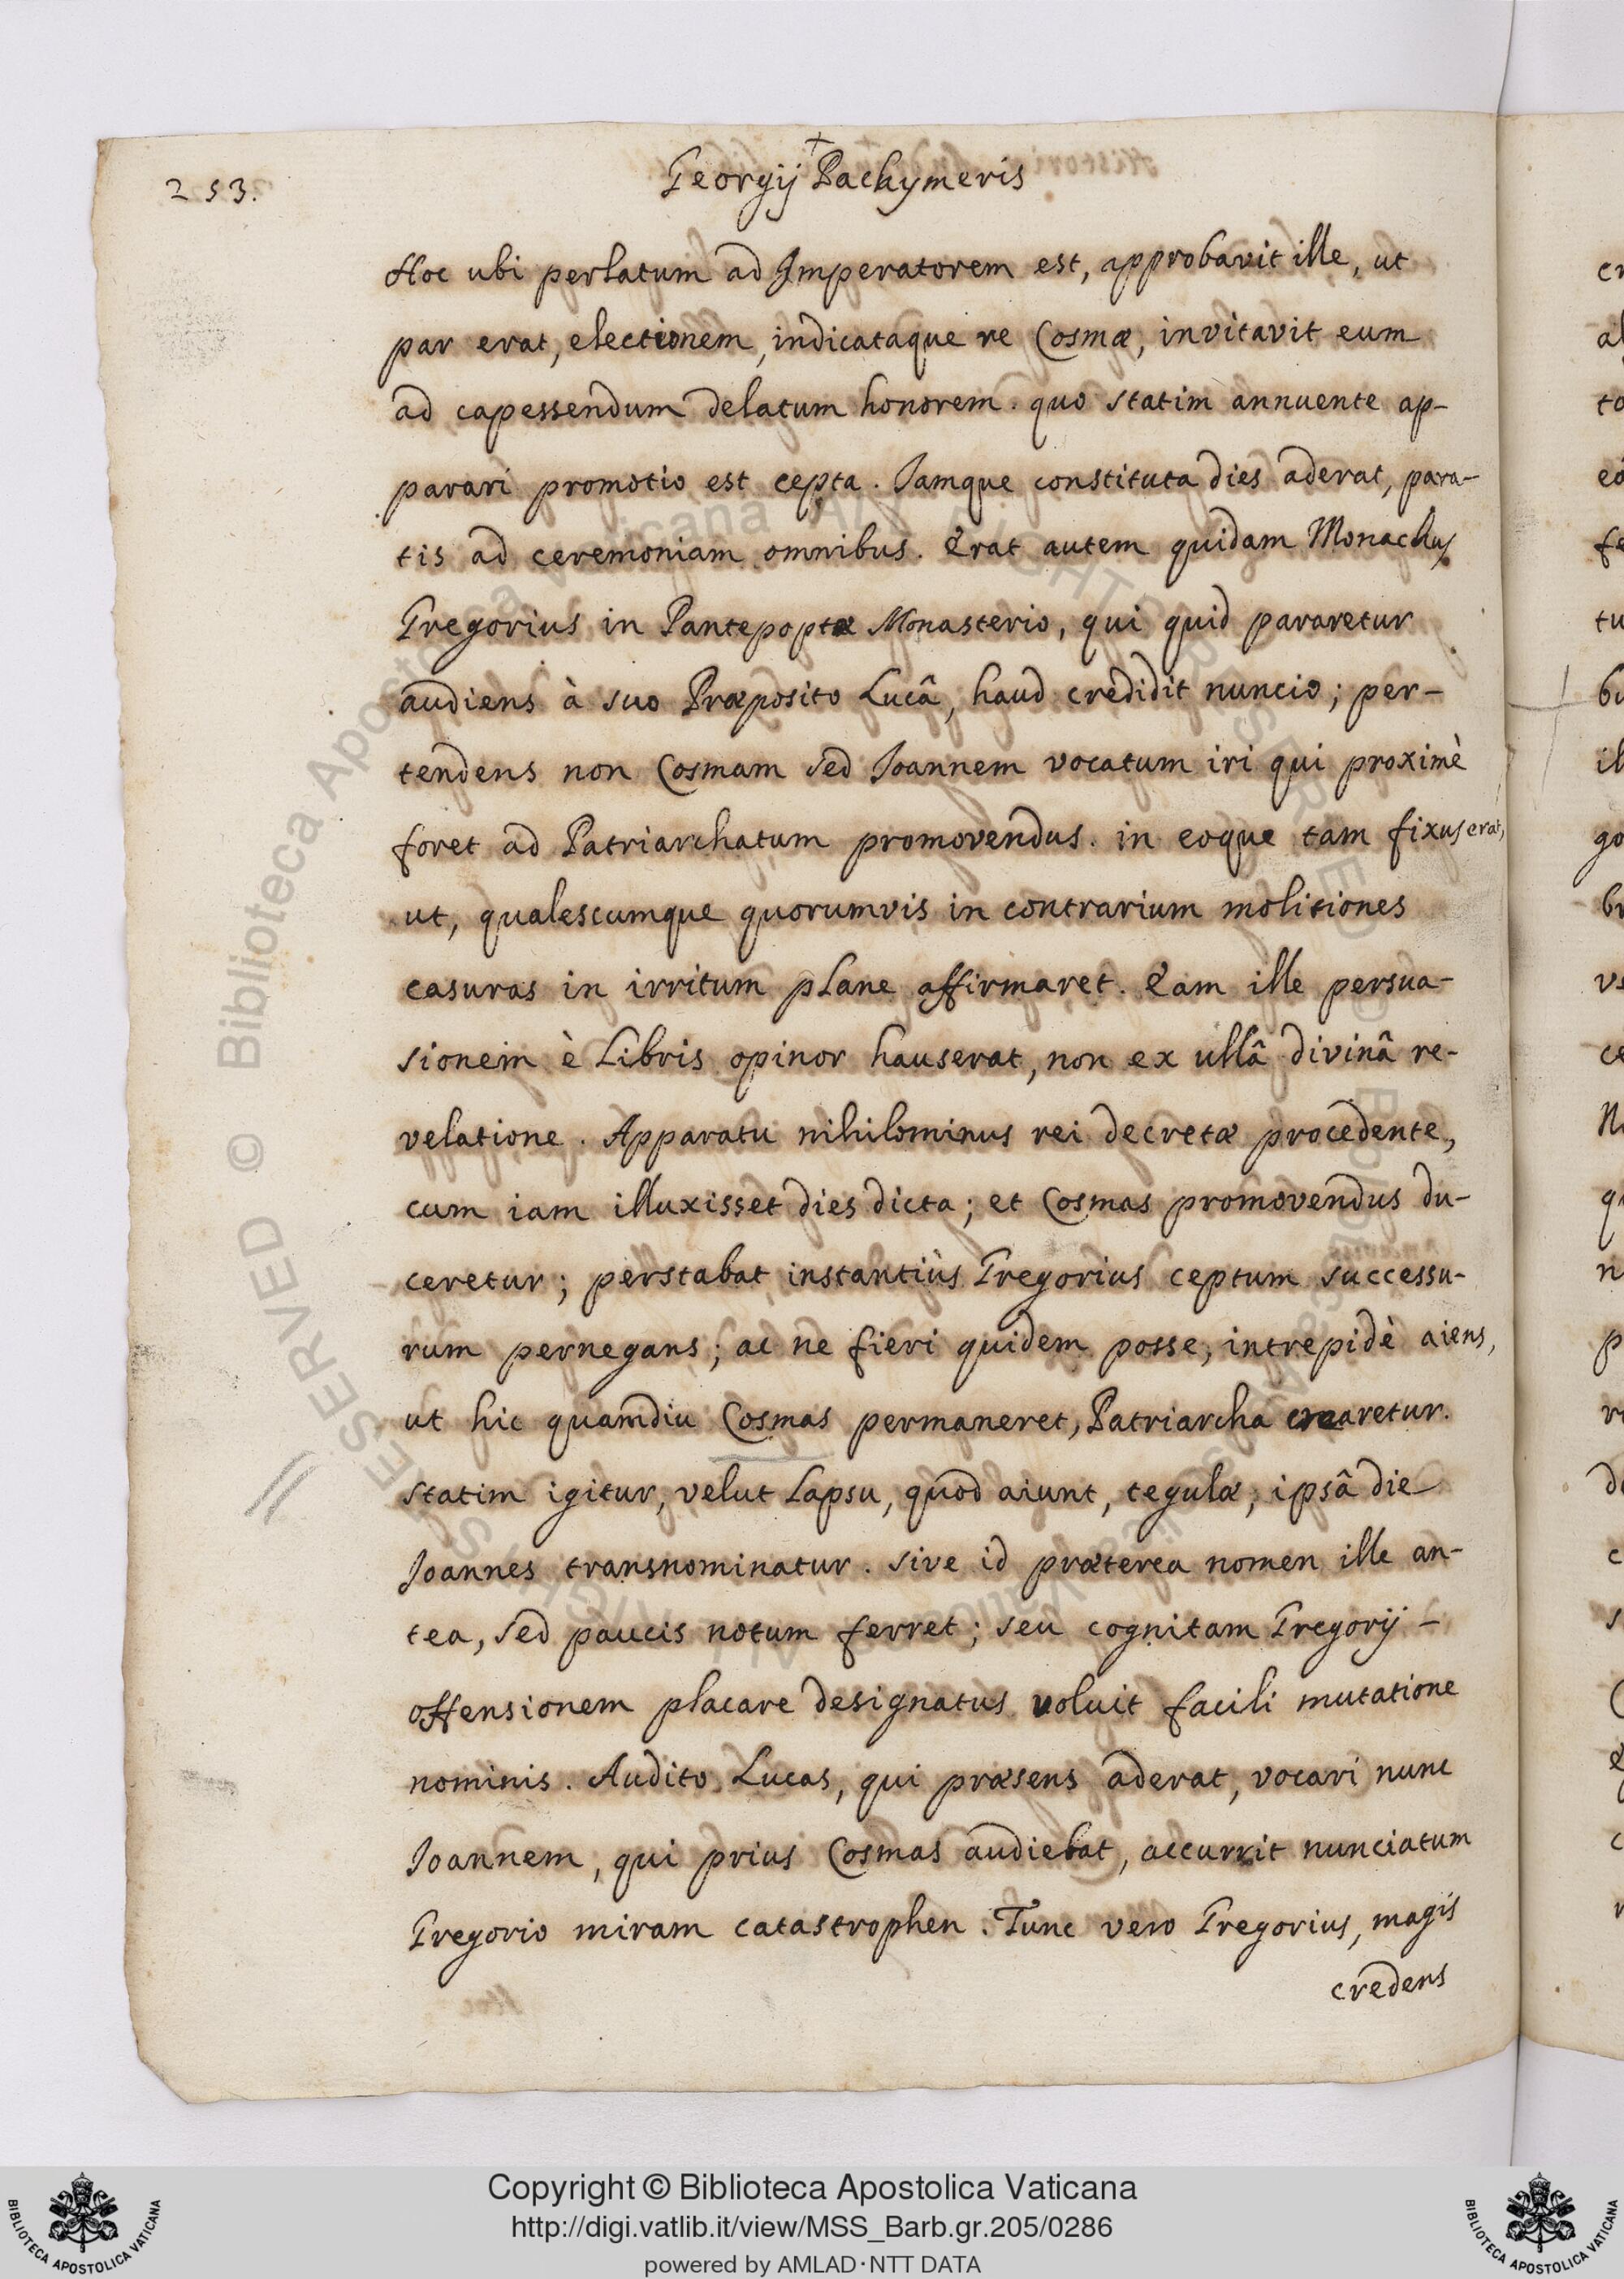 253.
Georgij Pachymeris
Hoc ubi perlatum ad Imperatorem est, approbavit ille, ut
par erat, electionem, indicataque re Cosmæ, invitavit eum
ad capessendum delatum honorem. quo statim annuente ap-
parari promotio est cepta. Jamque constituta dies aderat, para-
tis ad ceremoniam omnibus. Erat autem quidam Monachus
Gregorius in Pantepoptæ Monasterio, qui quid pararetur
audiens à suo Præposito Lucâ, haud credidit nuncio; per-
tendens non Cosmam sed Joannem vocatum iri qui proximè
foret ad Patriarchatum promovendus. in eoque tam fixus erat,
ut, qualescumque quorumvis in contrarium molitiones
casuras in irritum plane affirmaret. Eam ille persua-
sionem è Libris opinor hauserat, non ex ullâ divinâ re-
velatione. Apparatu nihilominus rei decretæ procedente,
cum iam illuxisset dies dicta; et Cosmas promovendus du-
ceretur; perstabat instantiùs Gregorius ceptum successu-
rum pernegans; ac ne fieri quidem posse, intrepidè aiens,
ut hic quamdiu Cosmas permaneret, Patriarcha crearetur.
statim igitur, velut Lapsu, quod aiunt, tegulæ, ipsâ die
Joannes transnominatur. sive id præterea nomen ille an-
tea, sed paucis notum ferret; seu cognitam Gregorij -
offensionem placare designatus voluit facili mutatione
nominis. Audito Lucas, qui præsens aderat, vocari nunc
Joannem, qui prius Cosmas audiebat, accurrit nunciatum
Gregorio miram catastrophen. Tunc vero Gregorius, magis
credens
Copyright © Biblioteca Apostolica Vaticana
http://digi.vatlib.it/view/MSS_Barb.gr.205/0286
powered by AMLAD·NTT DATA
BIBLIOTECA APOSTOLICA VATICANA
BIBLIOTECA APOSTOLICA VATICANA